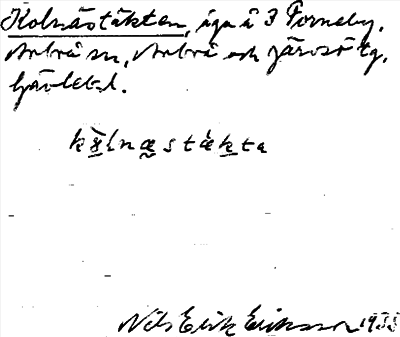 Kolnästäkten, äga å 3 Forneby,
Arbrå sn, Arbrå och Järvsö tg,
Gävlebl.
kölnæstækta
Nils Erik Eriksson 1935